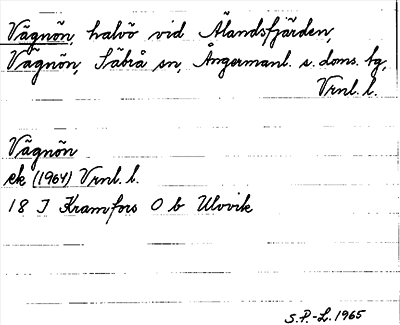 Vägnön, halvö vid Älandsfjärden,
Vägnön, Säbrå sn, Ångermanl. s. doms. bg,
Vrnl. l.
Vägnön
ek (1964) Vrnl. l.
18 J Kramfors 0 b Ulvvik
S.P.-L. 1965